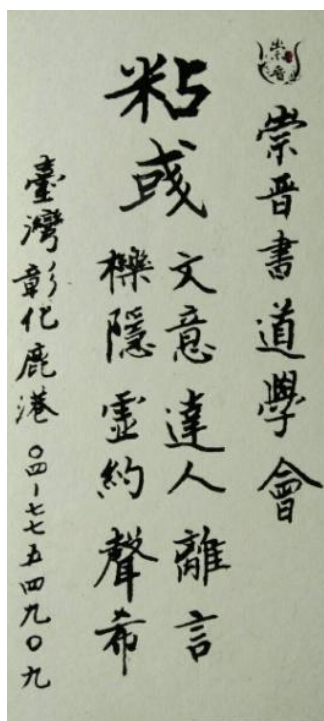 崇晋
崇晋書道學會
粘彧
文意達人離言
櫟隱靈約聲希
臺灣彰化鹿港 〇四-七七五四九〇九